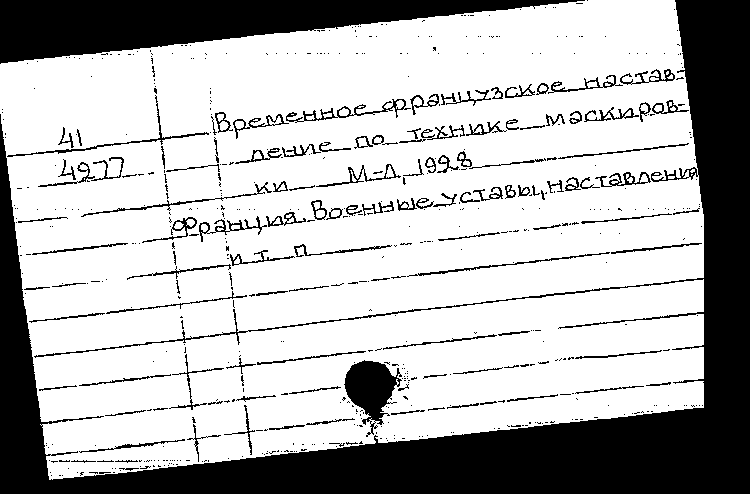 41
4277
Временное французское настав-
ление по технике маскиров-
ки М-Л, 1928
Франция. Военные уставы, наставления
и т. п